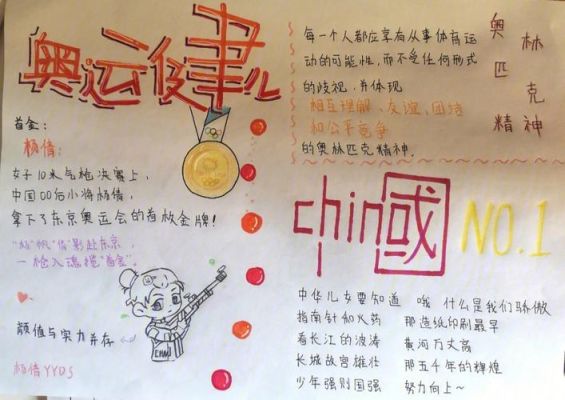 奥运健儿
首金：
杨倩：
女子10米气枪决赛上，
中国00后小将杨倩，
拿下了东京奥运会的首枚金牌！
一枪入魂揽“首金”。
颜值与实力并存
杨倩YYDS
CHN
每一个人都应享有从事体育运
动的可能性，而不受任何形式
的歧视，并体现
相互理解、友谊、团结
和公平竞争
的奥林匹克精神．
奥林匹克精神
chin国
NO.1
中华儿女要知道 哦 什么是我们骄傲
指南针和火药 那造纸印刷最早
看长江的波涛 黄河万丈高
长城故宫雄壮 那五千年的辉煌
少年强则国强 努力向上～